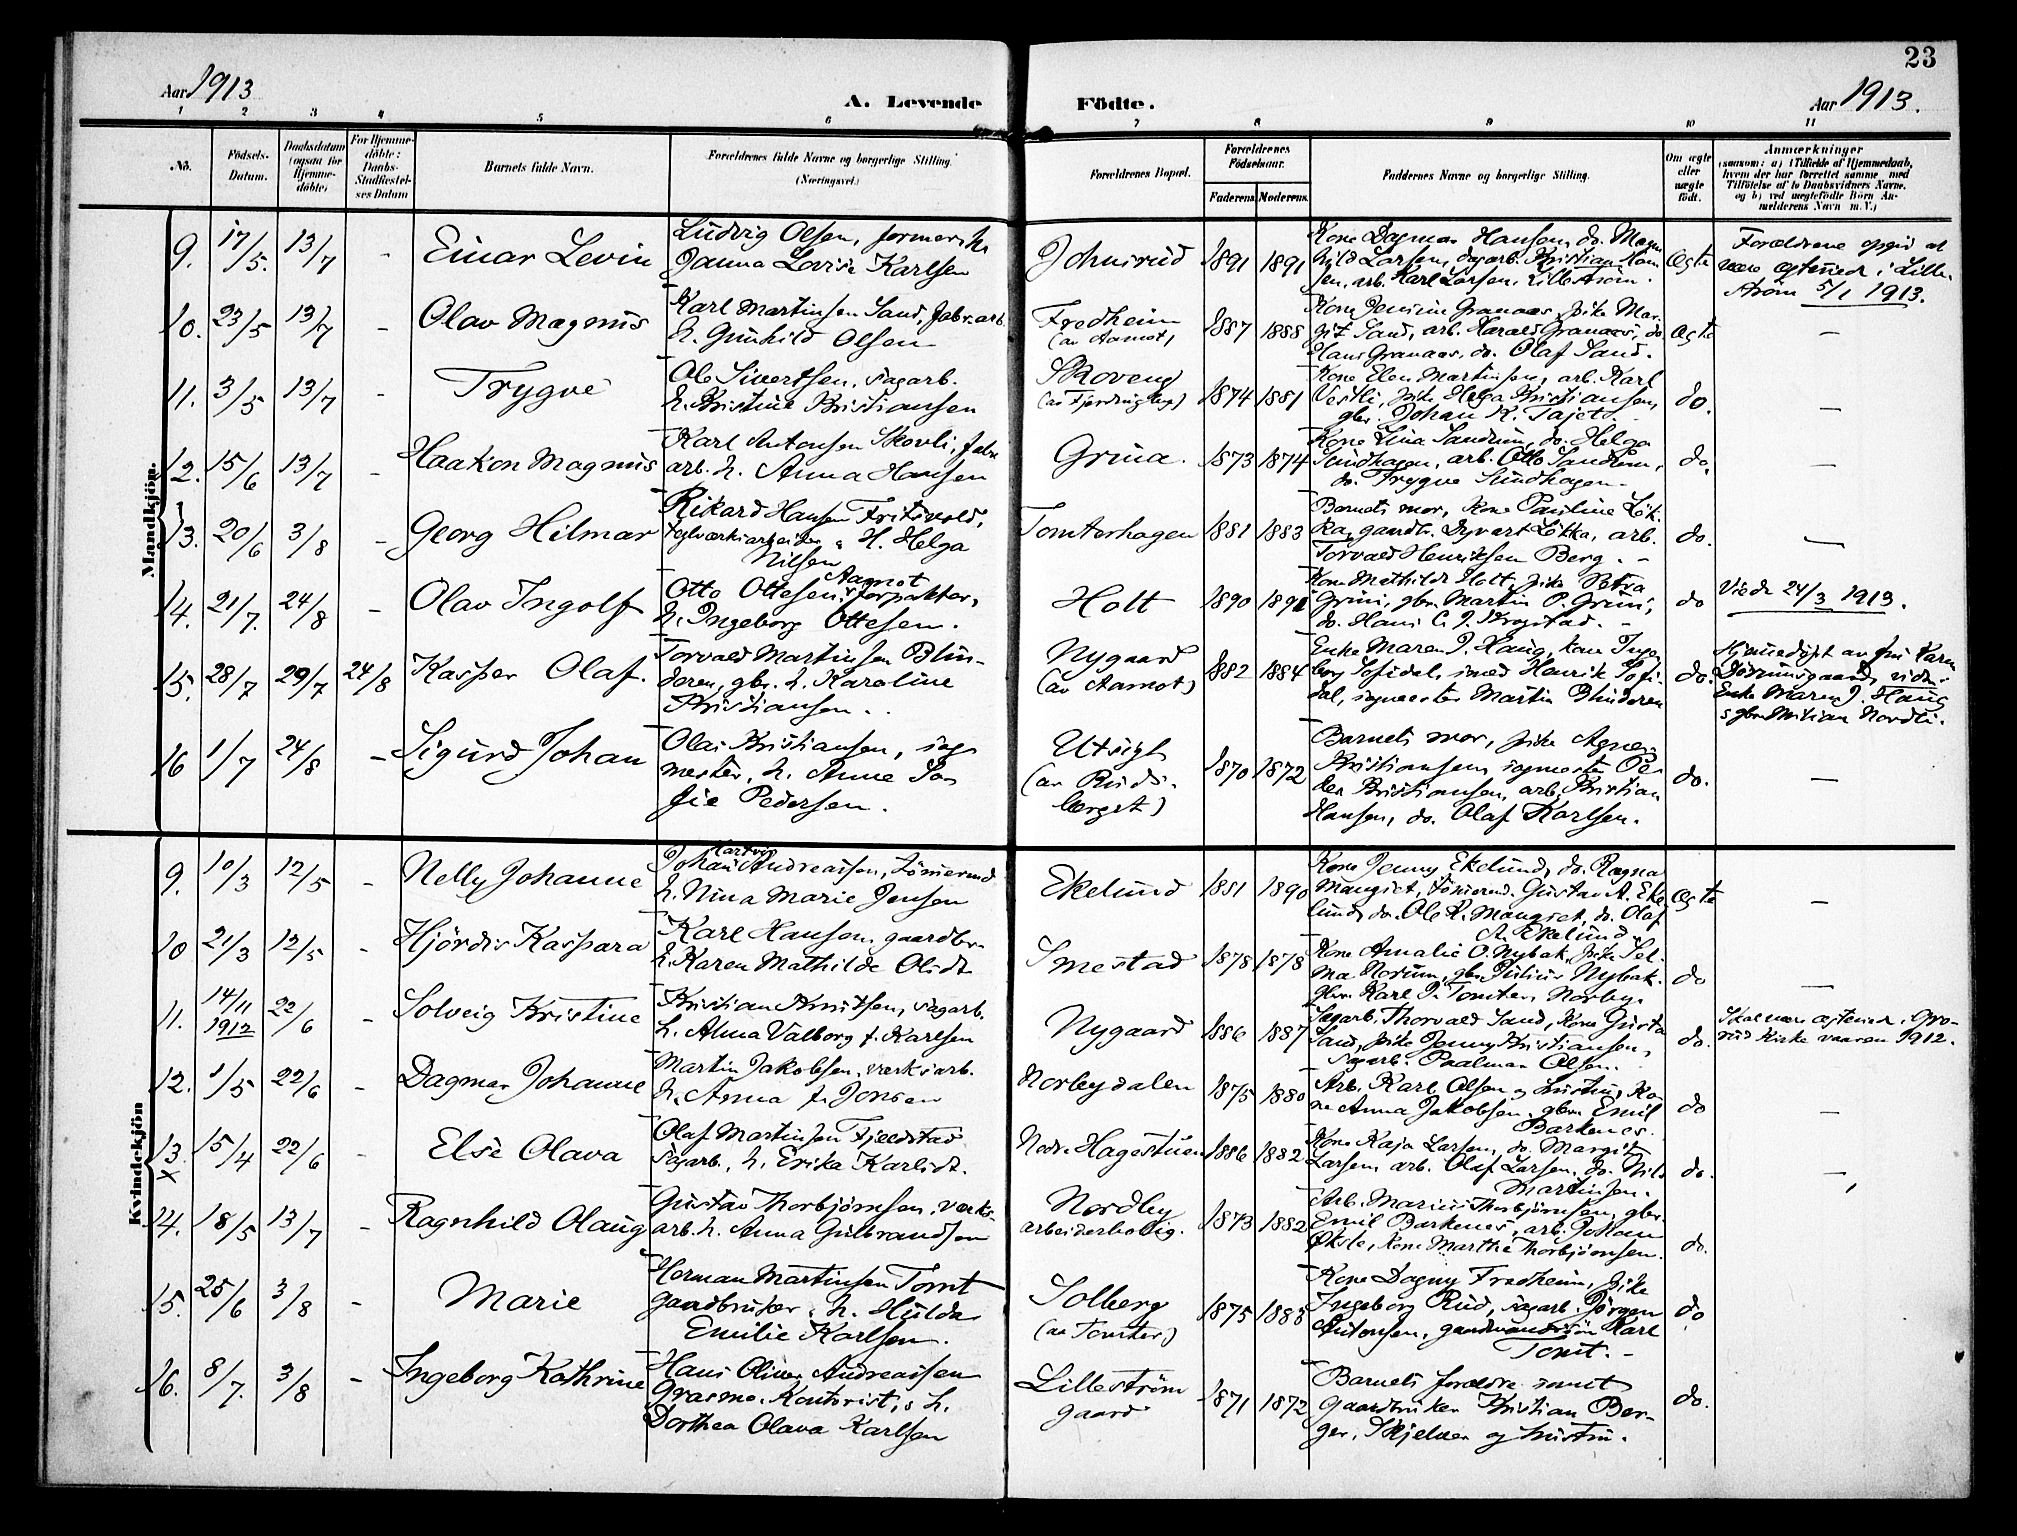 23
Aar 1913
A. Levende
Födte.
Aar 1913.
1 2 3 4 5 6 7 8 9 10 11
No.
Födsels-Datum.
Daabsdatum (ogsaa for Hjemme-döbte)
For Hjemme-döbte: Daabs-Stadfæstel-ses Datum
Barnets fulde Navn.
Forældrenes fulde Navne og borgerlige Stilling. (Næringsvei.)
Forældrenes Bopæl.
Forældrenes Födselsaar.
Faderens Moderens
Faddernes Navne og borgerlige Stilling.
Om ægte eller uægte födt.
Anmærkninger
(saasom: a) i Tilfælde af Hjemmedaab,
hvem der har forrettet samme med
Tilföielse af to Daabsvidners Navne,
og b) ved uægtefödte Börn An-
melderens Navn m. V.)
Mandkjön.
9. 17/5. 13/7 - Einar Levin
Ludvig Olsen, former, h.
Janna Lovise Karlsen
Johnsrud 1891 1891
Kone Dagmar Hansen, do. Magn
hild Larsen, dagarb. Kristian Han
sen, arb. Karl Larsen, Lilleström.
Ægte
Forældrene opgiv at
være egteviet i Lille-
ström 5/1 1913.
10. 23/5 13/7 - Olav Magnus
Karl Martinsen Sand, fabr.arb.
h. Gunhild Olsen
Fredheim
(av Aamot)
1887 1888
Kone Jensine Granaas, pike Mar-
git Sand, arb. Harald Granaas, do
Hans Granaas, do. Olaf Sand.
Ægte -
11. 3/5 13/7 - Trygve
Ole Sivertsen, sagarb.
h. Kristine Kristiansen
Skoveng
(av Fjerdingby)
1874 1881
Kone Elen Martinsen, arb. Karl
Vestli, pike Helga Kristiansen,
gbr. Johan K. Tajet.
do. -
12. 15/6 13/7 - Haakon Magnus
Karl Antonsen Skovli, fabr
arb. h. Anna Hansen
Grina. 1873 1874
Kone Lina Sandum, do. Helga
Sundhagen, arb. Otto Sandum,
do. Trygve Sundhagen.
do. -
13. 20/6 3/8 - Georg Hilmar
Rikard Hansen Fritsvold,
teglverksarbeider, H. Helga
Nilsen
Tomterhagen 1881 1883
Barnets mor, kone Pauline Lök-
ka, gaardbr. Syvert Lökka, arb.
Torvald Henriksen Berg. -
do. -
14. 21/7. 24/8 - Olav Ingolf
Otto Ottesen Aamot, forpakter,
h. Ingeborg Ottesen.
Holt 1890 1891
Kone Mathilde Holt, pike Petra
Grini, gbr. Martin P. Grini,
do. Hans C. J. Krogstad. -
do
Viede 24/3 1913.
15. 28/7 29/7 24/8 Kasper Olaf.
Torvald Martinsen Blin-
deren, gbr. h. Karoline
Kristiansen.
Nygaard
(av Aamot)
1882 1884
Enke Maren J. Haug, kone Inge-
borg Sofidal, smed Henrik Sofi-
dal, sagmester Martin Blinderen
do.
Hjemmedöpt av fru Karen
vidn:
Enke Maren J. Haug
16 1/7 24/8 - Sigurd Johan
Olai Kristiansen, sag
mester, h. Anne So
fie Pedersen.
Utsigt
(av Ruds-
berget)
1870 1872
Barnets mor, pike Agnes
Kristiansen, sagmester Pe
der Kristiansen, arb. Kristian
Hansen, do. Olaf Karlsen.
do. -
Kvindekjön
9. 10/3 12/5 - Nelly Johanne
Johan Hartvig Andreassen, tömmerm
h. Nina Marie Jensen
Ekelund 1881 1890
Kone Jenny Ekelund, do. Ragna
Mangset, tömmerm. Gustav A. Eke
lund, do. Ole R. Mangset, do. Olaf
A. Ekelund.
Ægte -
10 21/3 12/5 - Hjördis Kaspara
Karl Hansen, gaardbr.
h. Karen Mathilde Olsdt.
Smestad 1878 1878
Kone Amalie O. Nybak, pike Sel-
ma Norum, gbr. Julius Nybak.
gbr. Karl P. Tomter, Norby.
do -
11. 14/11 1912 22/6 - Solveig Kristine
Kristian Knutsen, sagarb.
h. Alma Valborg f. Karlsen
Nygaard 1886 1887
Sagarb. Thorvald Sand, Kone Gusta
Sand, pike Jenny Kristiansen,
sagarb. Paalman Olsen.
do.
Skal være egteviet i Gro-
rud kirke vaaren 1912.
12. 1/5 22/6 - Dagmar Johanne
Martin Jakobsen, verksarb.
h. Anna f. Jonsen
Norbydalen 1875 1880
Arb. Karl Olsen og hustru, Ko-
ne Anna Jakobsen, gbr. Emil
Barkenes.
do -
13. x 15/4 22/6 - Else Olava
Olaf Martinsen Fjeldstad
sagarb., h. Erika Karlsdt.
Nedre Hagestuen 1886 1882
Kone Kaja Larsen, do. Margit
Larsen, arb. Olaf Larsen, do. Nils
Martinsen.
do. -
14. 18/5 13/7 - Ragnhild Olaug
Gustav Thorbjørnsen, verks-
arb. h. Anna Gulbrandsen
Nordby
arbeiderbolig.
1873 1882
Arb. Marius Thorbjørnsen, gbr.
Emil Barkenes, arb. Johan
Økste, kone Marthe Thorbjørnsen.
do.
15. 25/6 3/8 - Marie
Herman Martinsen Tomt
gaardbruker, h. Hulda
Emilie Karlsen.
Solberg
(av Tomter)
1875 1888
Kone Dagny Fredheim, pike
Ingeborg Rud, sagarb. Jörgen
Antonsen, gaardmandssön Karl
Tomt. -
do
16. 8/7. 3/8 - Ingeborg Kathrine
Hans Oliver Andreassen
Grasmo, Kontorist, h.
Dorthea Olava Karlsen
Lilleström
gaard
1871 1872
Barnets forældre samt
gaardbruker Kristian Ber-
ger, Skjetten og hustru.
do.